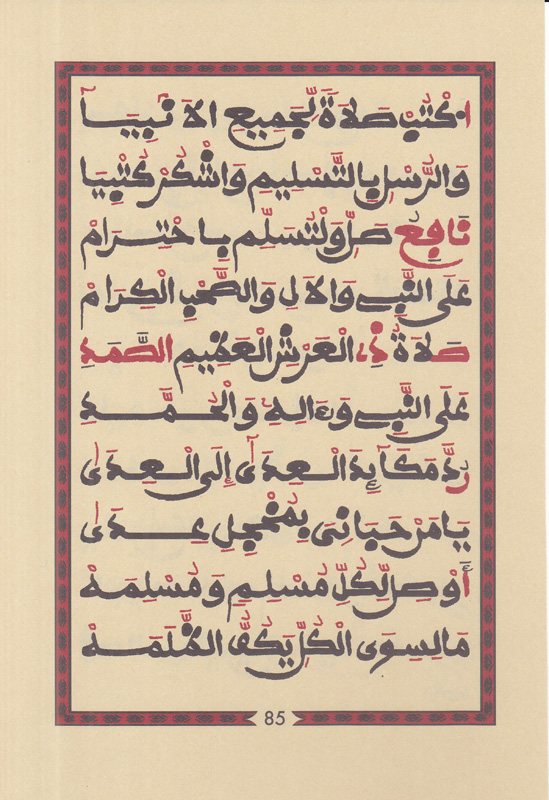 اكْتُبْ صَلَاةً لِّجَمِيعِ الَانْبِيَا
وَالرُّسْلِ بِالتَّسْلِيمِ وَاشْكُرْ كَتْبِيَا
نَافِعُ صَلِّ وَلْتُسَلِّمْ بِاحْتِرَامْ
عَلَى النَّبِي وَالَالِ وَالصَّحْبِ الْكِرَامْ
صَلَاةُ ذِي الْعَرْشِ الْعَظِيمِ الصَّمَدِ
عَلَى النَّبِي وَءَالِهِ وَالْحُمَّدِ
رُدَّ مَكَآئِدَ الْعِدَىٰ إِلَى الْعِدَىٰ
يَا مَنْ حَبَانِي بِمُخْجِلِ عِدَىٰ
أَوْصِلْ لِكُلِّ مُسْلِمٍ وَمُسْلِمَهْ
مَا لِسِوَى الْكُلِّ يَكُفُّ الْمُظْلَمَهْ
85